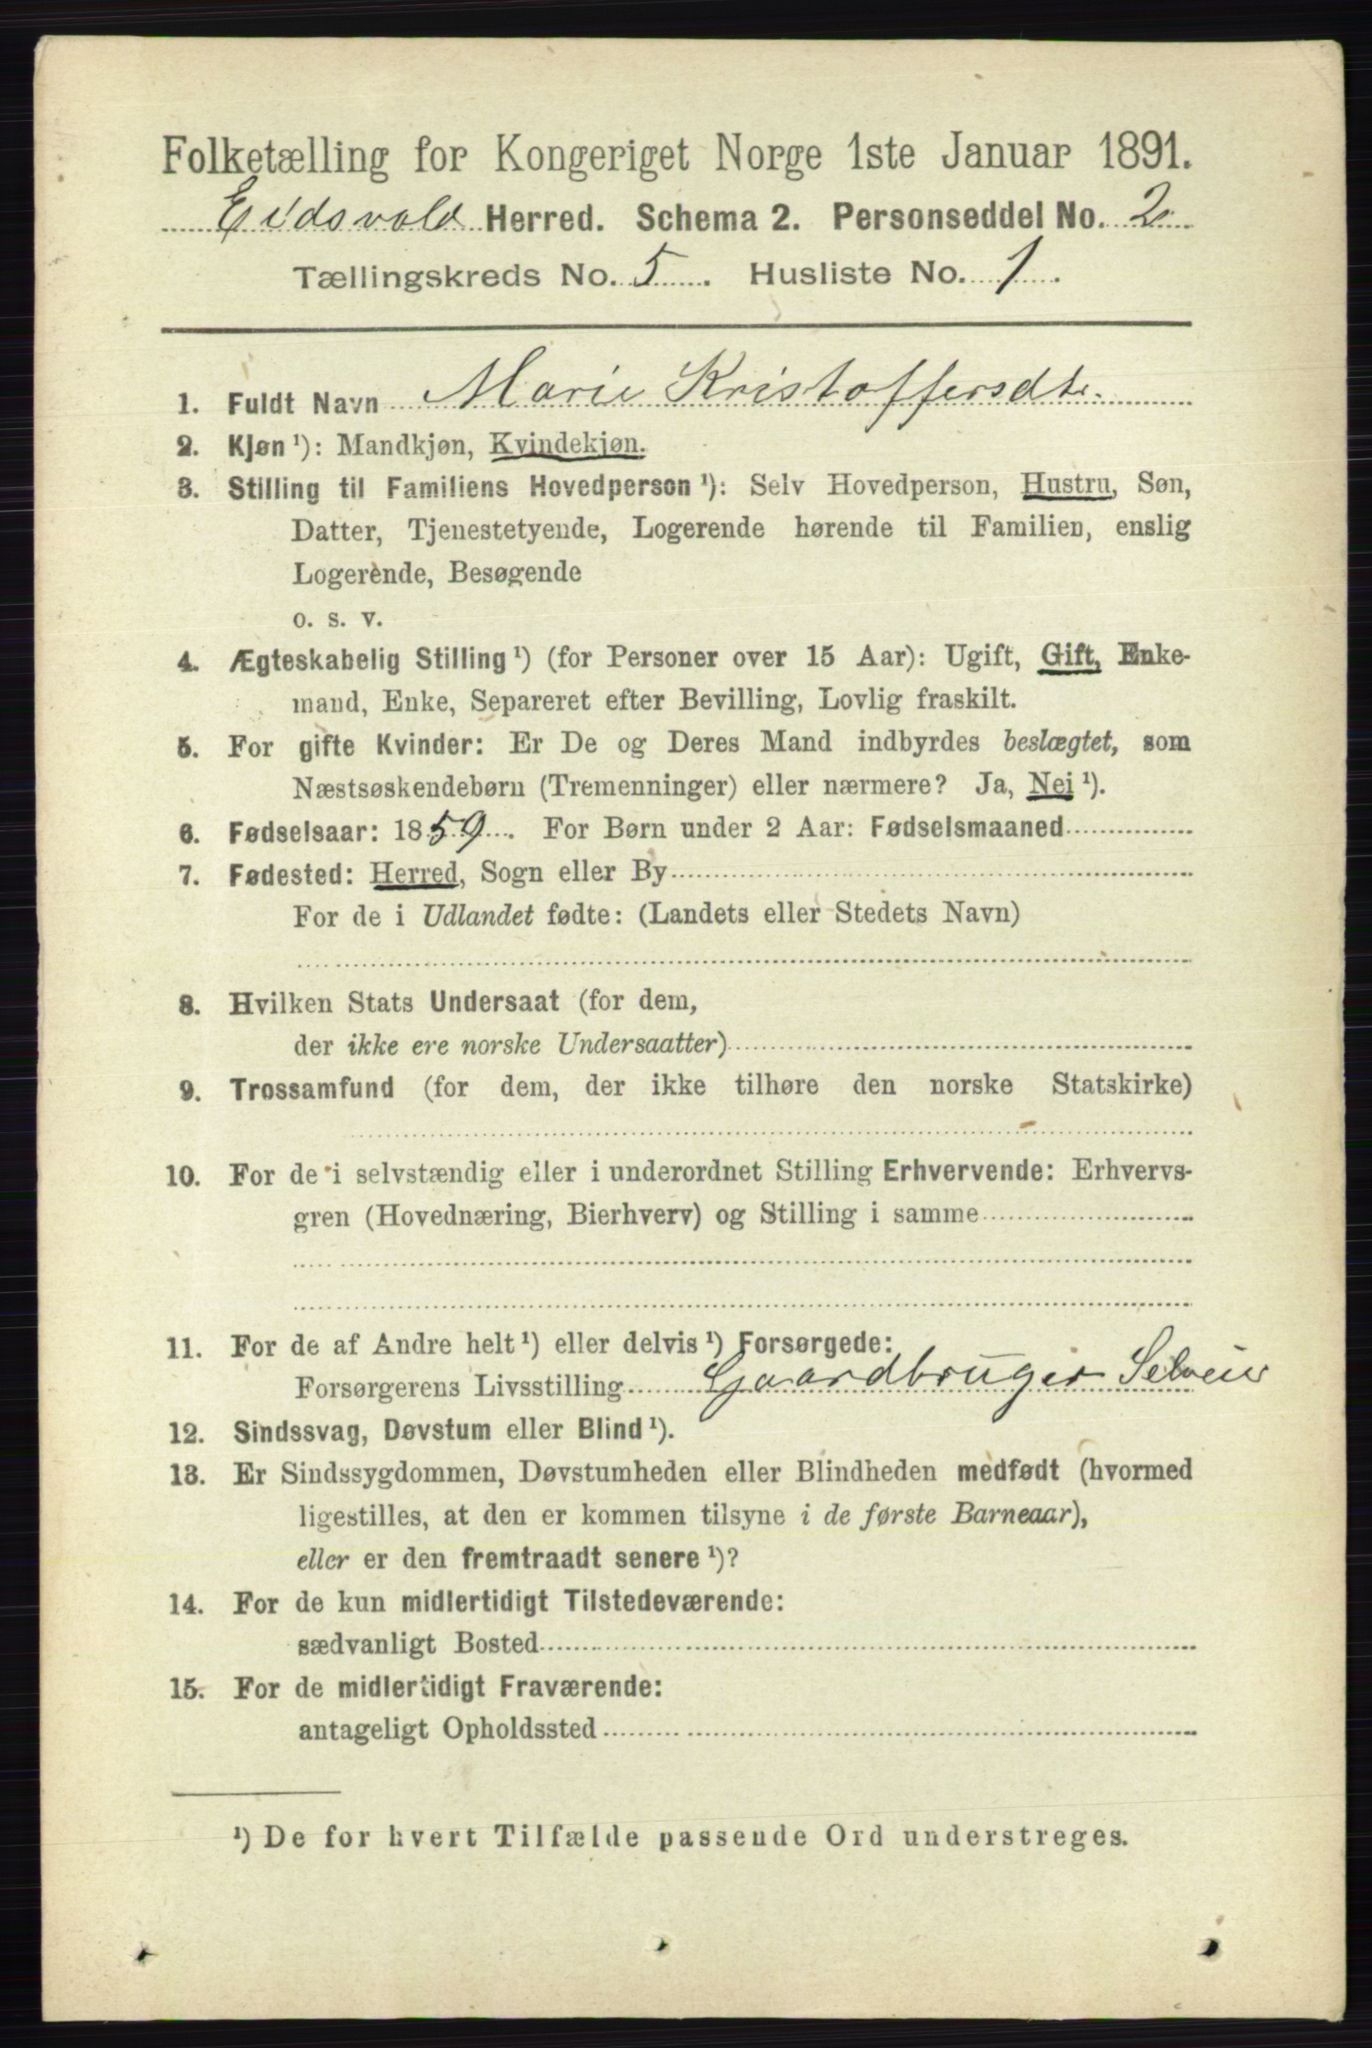 Folketælling for Kongeriget Norge 1ste Januar 1891.
Eidsvold Herred. Schema 2. Personseddel No. 2
Tællingskreds No. 5. Husliste No. 1.
1. Fuldt Navn Marie Kristoffersdtr.
2. Kjøn ¹): Mandkjøn, Kvindekjøn.
3. Stilling til Familiens Hovedperson ¹): Selv Hovedperson, Hustru, Søn,
Datter, Tjenestetyende, Logerende hørende til Familien, enslig
Logerende, Besøgende
o. s. v.
4. Ægteskabelig Stilling ¹) (for Personer over 15 Aar): Ugift, Gift, Enke-
mand, Enke, Separeret efter Bevilling, Lovlig fraskilt.
5. For gifte Kvinder: Er De og Deres Mand indbyrdes beslægtet, som
Næstsøskendebørn (Tremenninger) eller nærmere? Ja, Nei ¹).
6. Fødselsaar: 1859. For Børn under 2 Aar: Fødselsmaaned
7. Fødested: Herred, Sogn eller By
For de i Udlandet fødte: (Landets eller Stedets Navn)
8. Hvilken Stats Undersaat (for dem,
der ikke ere norske Undersaatter)
9. Trossamfund (for dem, der ikke tilhøre den norske Statskirke)
10. For de i selvstændig eller i underordnet Stilling Erhvervende: Erhvervs-
gren (Hovednæring, Bierhverv) og Stilling i samme
11. For de af Andre helt ¹) eller delvis ¹) Forsørgede:
Forsørgerens Livsstilling Gaardbruger Selveier
12. Sindssvag, Døvstum eller Blind ¹).
13. Er Sindssygdommen, Døvstumheden eller Blindheden medfødt (hvormed
ligestilles, at den er kommen tilsyne i de første Barneaar),
eller er den fremtraadt senere ¹)?
14. For de kun midlertidigt Tilstedeværende:
sædvanligt Bosted
15. For de midlertidigt Fraværende:
antageligt Opholdssted
¹) De for hvert Tilfælde passende Ord understreges.